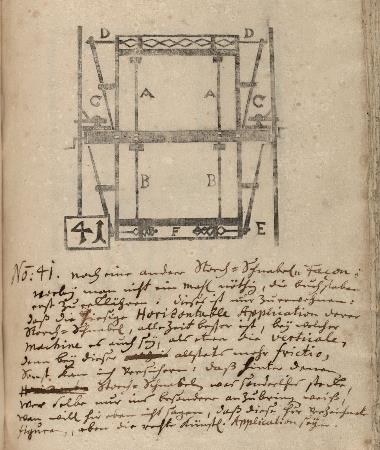 D D
A A
C C
B B
F E
41
No: 41. noch eine andere Storch=Schnabel Facon:
wobey man nicht ein mahl nöthig, die buchstaben
erst zu: dieses ist nur zu erwehnen:
daß die Horizontale Application derer
Storch=Schnäbel, alle Zeit besser ist, bey welcher
Machine es auch sey, als etwa die verticale,
denn bey dieser allzeit mehr frictio,
Sonst kan ich versichern: daß hinter denen
Storch=Schnäbeln was sonderliches stecke,
wer selbe nur ins besondere anzubringen weiß,
man will hir eben nicht sagen, daß diese hir verzeichnete
figuren, eben die rechte künstl: Application seyn.